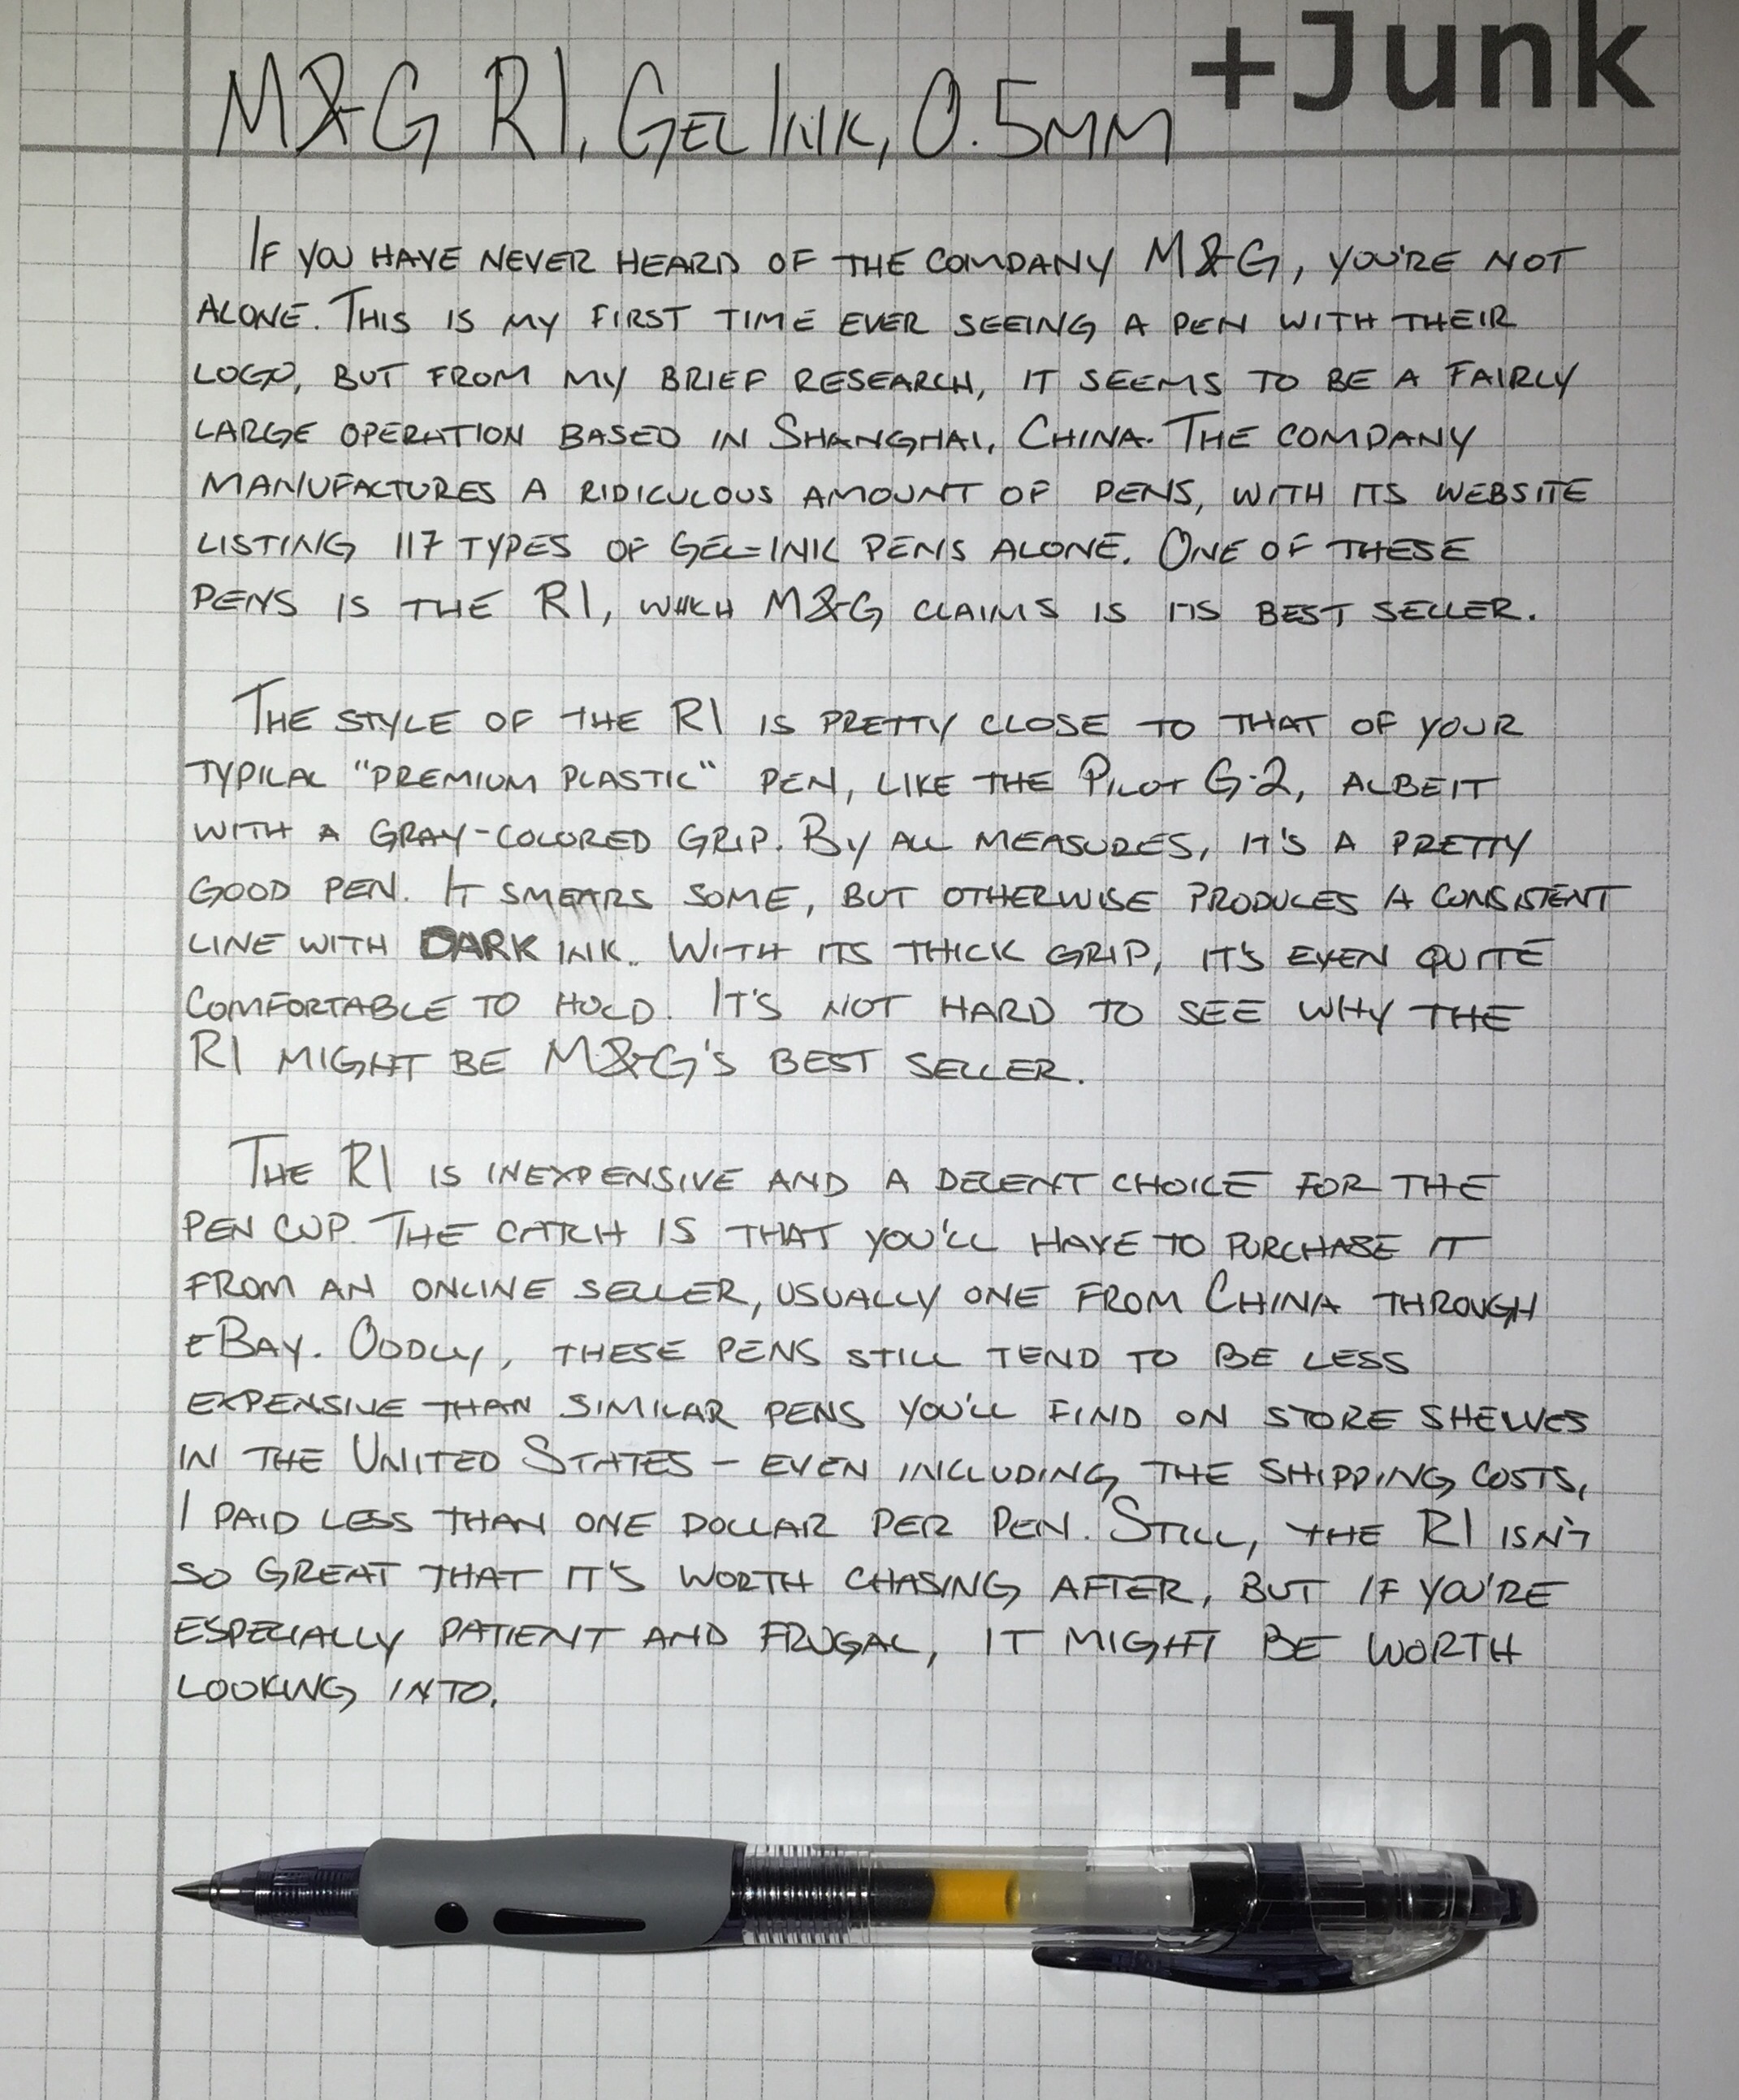 +Junk
M&G R1, Gel Ink, 0.5mm
If you have never heard of the company M&G, you're not
alone. This is my first time ever seeing a pen with their
logo, but from my brief research, it seems to be a fairly
large operation based in Shanghai, China. The company
manufactures a ridiculous amount of pens, with its website
listing 117 types of gel-ink pens alone. One of these
pens is the R1, which M&G claims is its best seller.
The style of the R1 is pretty close to that of your
typical "premium plastic" pen, like the Pilot G-2, albeit
with a gray-colored grip. By all measures, it's a pretty
good pen. It smears some, but otherwise produces a consistent
line with DARK ink. With its thick grip, it's even quite
comfortable to hold. It's not hard to see why the
R1 might be M&G's best seller.
The R1 is inexpensive and a decent choice for the
pen cup. The catch is that you'll have to purchase it
from an online seller, usually one from China through
eBay. Oddly, these pens still tend to be less
expensive than similar pens you'll find on store shelves
in the United States - even including the shipping costs,
I paid less than one dollar per pen. Still, the R1 isn't
so great that it's worth chasing after, but if you're
especially patient and frugal, it might be worth
looking into.